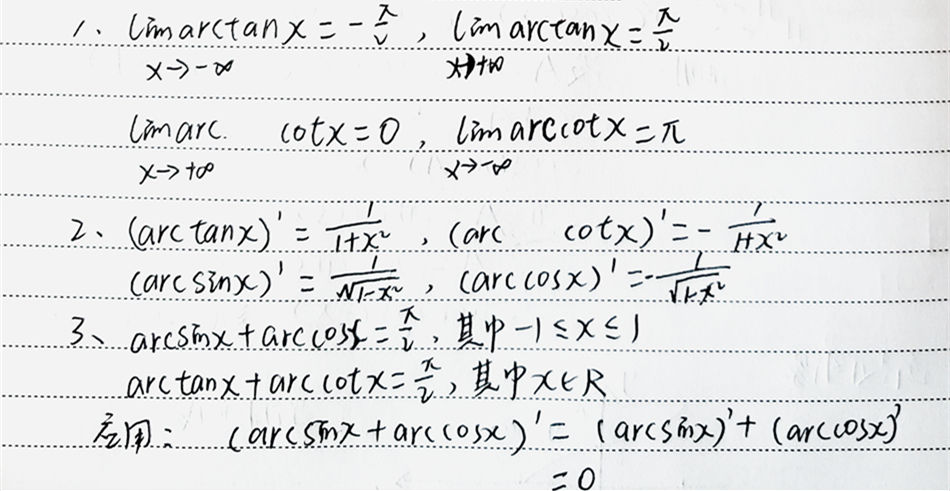 1、lim arctanx = -π/2 , lim arctanx = π/2
x→-∞ x→+∞
lim arc. cotx = 0 , lim arccotx = π
x→+∞ x→-∞
2、(arctanx)' = 1/(1+x²) , (arc cotx)' = - 1/(1+x²)
(arcsinx)' = 1/√(1-x²) , (arccosx)' = - 1/√(1-x²)
3、arcsinx + arccosx = π/2 , 其中 -1 ≤ x ≤ 1
arctanx + arccotx = π/2 , 其中 x∈R
应用: (arcsinx + arccosx)' = (arcsinx)' + (arccosx)'
= 0